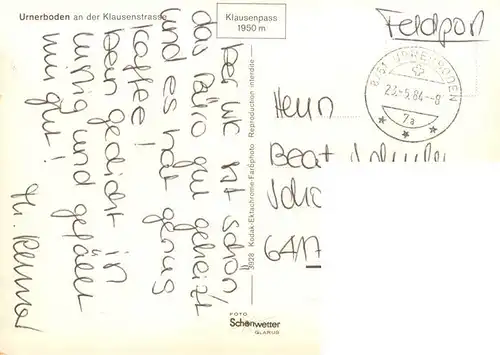 Urnerboden an der Klausenstrasse
Klausenpass
1950 m
Feldpost
8751 URNERBODEN
23.-5.84-8
7a
bei uns ist schön
das Büro gut geheizt
und es hat genug
Kaffee!
dein Gedicht ist
lustig und gefällt
mir gut!
Herrn
Beat
64/17
3928 Kodak-Ektachrome-Farbphoto Reproduction interdite
FOTO
Schönwetter
GLARUS